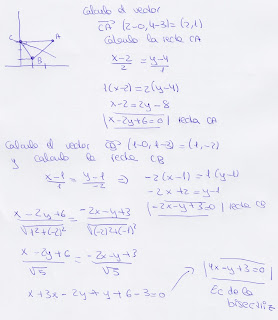 C
A
B
Calculo el vector
CA (2-0, 4-3) = (2,1)
Calculo la recta CA
x-2/2 = y-4/1
1(x-2) = 2(y-4)
x-2 = 2y-8
x-2y+6=0 recta CA
Calculo el vector CB (1-0, 1-3) = (1,-2)
y calculo la recta CB
x-1/1 = y-1/-2 ⇒ -2(x-1) = 1(y-1)
-2x+2 = y-1
-2x-y+3=0 recta CB
x-2y+6/√(1²+(-2)²) = -2x-y+3/√((-2)²+(-1)²)
x-2y+6/√5 = -2x-y+3/√5
x+3x-2y+y+6-3=0
4x-y+3=0
Ec de la
bisectriz